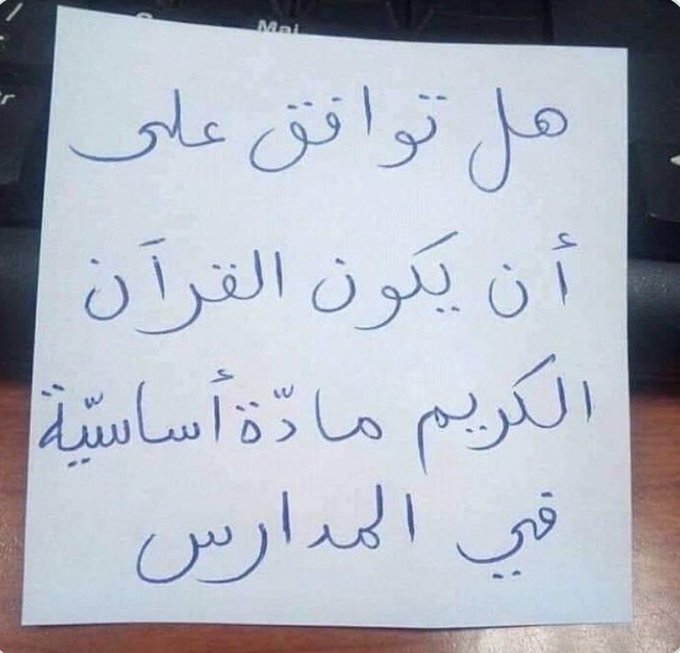 Mai
هل توافق على
أن يكون القرآن
الكريم مادّة أساسيّة
في المدارس